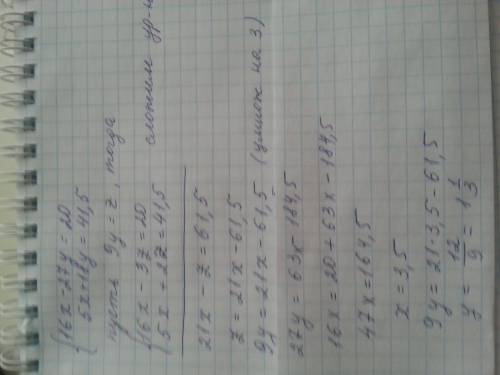 { 16x-27y=20
5x+18y=41,5
пусть 9y=z, тогда
{ 16x-3z=20
5x+2z=41,5 сложим ур-
21x-z=61,5
z=21x-61,5
9y=21x-61,5 (умнож на 3)
27y=63x-184,5
16x=20+63x-184,5
47x=164,5
x=3,5
9y=21·3,5-61,5
y=12/9=1 1/3